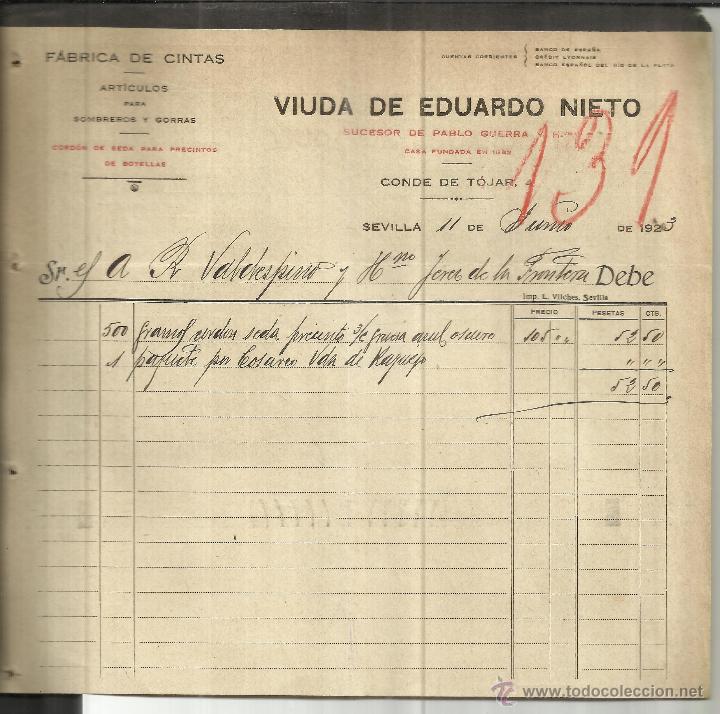 FÁBRICA DE CINTAS
ARTÍCULOS
PARA
SOMBREROS Y GORRAS
CORDÓN DE SEDA PARA PRECINTOS
DE BOTELLAS
CUENTAS CORRIENTES
BANCO DE ESPAÑA
CRÉDIT LYONNAIS
BANCO ESPAÑOL DEL RÍO DE LA PLATA
VIUDA DE EDUARDO NIETO
SUCESOR DE PABLO GUERRA
CASA FUNDADA EN
CONDE DE TÓJAR, 4
131
SEVILLA 11 DE Junio DE 1923
Sr. es A R Valdespino y Hno Jerez de la Frontera Debe
Imp. L. Vilches. Sevilla
PRECIO PESETAS CTS.
500 gramos cordon seda precinto 3/c gruesa azul oscuro 105 " " 52 50
1 paquete por Cosario Vda de " " "
52 50
todocoleccion
www.todocoleccion.net